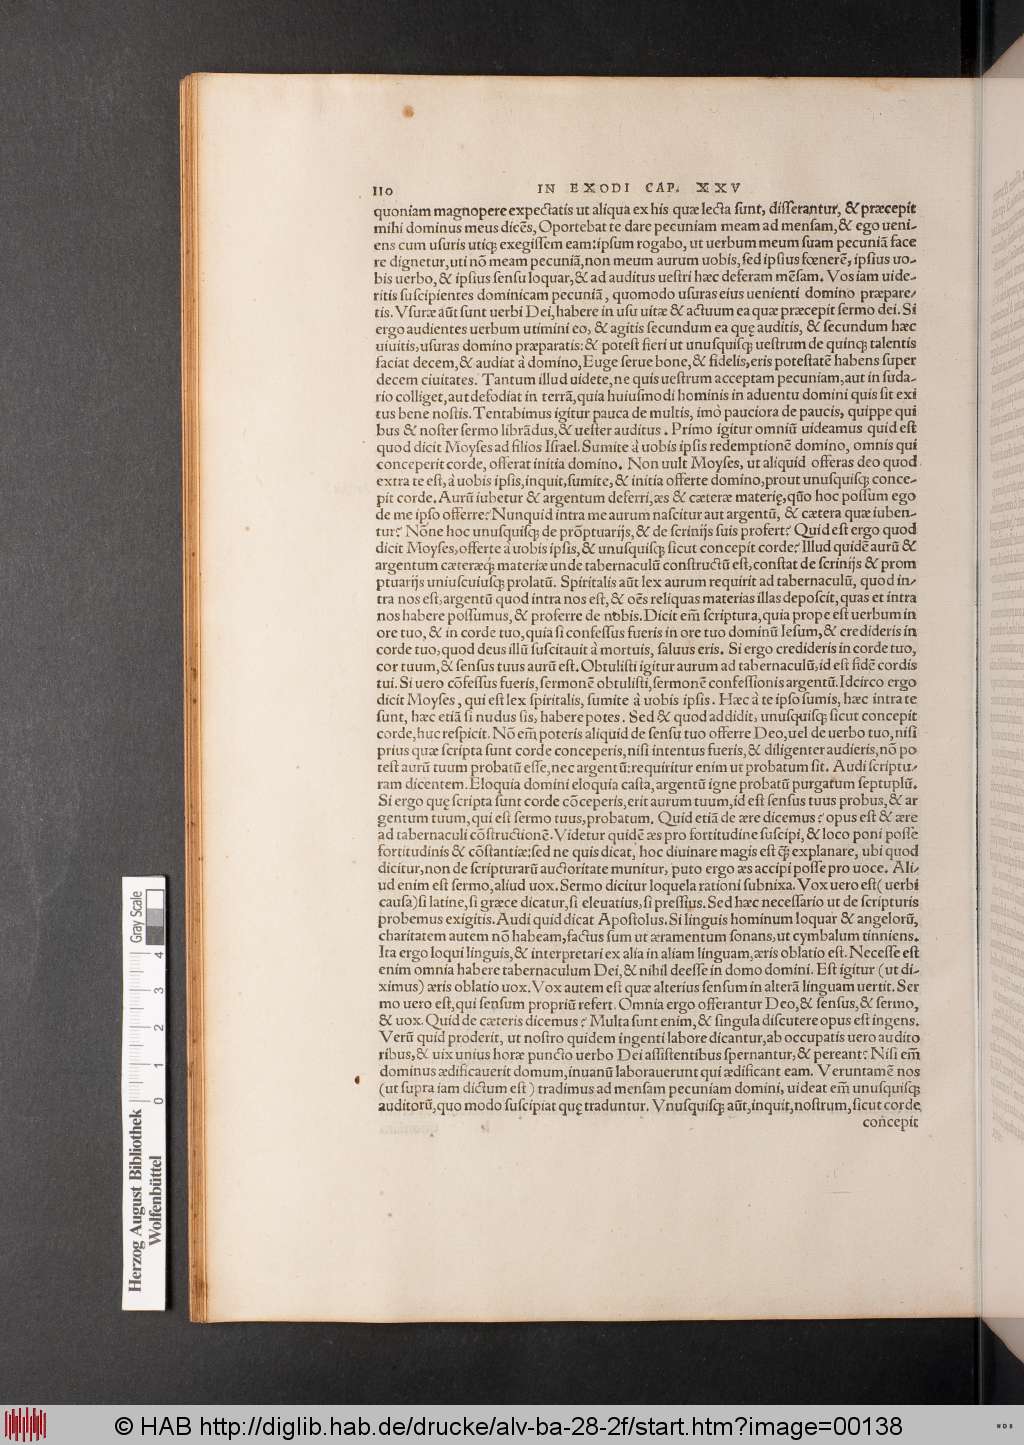 110 IN EXODI CAP. XXV
quoniam magnopere expectatis ut aliqua ex his quæ lecta sunt, disserantur, & præcepit
mihi dominus meus dicẽs, Oportebat te dare pecuniam meam ad mensam, & ego ueni-
ens cum usuris utiq; exegissem eam: ipsum rogabo, ut uerbum meum suam pecuniã face
re dignetur, uti nõ meam pecuniã, non meum aurum uobis, sed ipsius fœnerẽ, ipsius uo-
bis uerbo, & ipsius sensu loquar, & ad auditus uestri hæc deferam mẽsam. Vos iam uide-
ritis suscipientes dominicam pecuniã, quomodo usuras eius uenienti domino præpare-
tis. Vsuræ aũt sunt uerbi Dei, habere in usu uitæ & actuum ea quæ præcepit sermo dei. Si
ergo audientes uerbum utimini eo, & agitis secundum ea quę auditis, & secundum hæc
uiuitis, usuras domino præparatis: & potest fieri ut unusquisq; uestrum de quinq; talentis
faciat decem, & audiat à domino, Euge serue bone, & fidelis, eris potestatẽ habens super
decem ciuitates. Tantum illud uidete, ne quis uestrum acceptam pecuniam, aut in suda-
rio colliget, aut defodiat in terrã, quia huiusmodi hominis in aduentu domini quis sit exi
tus bene nostis. Tentabimus igitur pauca de multis, imò pauciora de paucis, quippe qui
bus & noster sermo librãdus, & uester auditus. Primo igitur omniũ uideamus quid est
quod dicit Moyses ad filios Israel. Sumite à uobis ipsis redemptionẽ domino, omnis qui
conceperit corde, offerat initia domino. Non uult Moyses, ut aliquid offeras deo quod
extra te est, à uobis ipsis, inquit, sumite, & initia offerte domino, prout unusquisq; conce-
pit corde. Aurũ iubetur & argentum deferri, æs & cæteræ materię, quõ hoc possum ego
de me ipso offerre? Nunquid intra me aurum nascitur aut argentũ, & cætera quæ iuben-
tur? Nõne hoc unusquisq; de prõptuarijs, & de scrinijs suis profert? Quid est ergo quod
dicit Moyses, offerte à uobis ipsis, & unusquisq; sicut concepit corde? Illud quidẽ aurũ &
argentum cæteræq; materiæ unde tabernaculũ constructũ est, constat de scrinijs & prom
ptuarijs uniuscuiusq; prolatũ. Spiritalis aũt lex aurum requirit ad tabernaculũ, quod in-
tra nos est, argentũ quod intra nos est, & oẽs reliquas materias illas deposcit, quas et intra
nos habere possumus, & proferre de nobis. Dicit em̃ scriptura, quia prope est uerbum in
ore tuo, & in corde tuo, quia si confessus fueris in ore tuo dominũ Iesum, & credideris in
corde tuo, quod deus illũ suscitauit à mortuis, saluus eris. Si ergo credideris in corde tuo,
cor tuum, & sensus tuus aurũ est. Obtulisti igitur aurum ad tabernaculũ, id est fidẽ cordis
tui. Si uero cõfessus fueris, sermonẽ obtulisti, sermonẽ confessionis argentũ. Idcirco ergo
dicit Moyses, qui est lex spiritalis, sumite à uobis ipsis. Hæc à te ipso sumis, hæc intra te
sunt, hæc etiã si nudus sis, habere potes. Sed & quod addidit, unusquisq; sicut concepit
corde, huc respicit. Nõ em̃ poteris aliquid de sensu tuo offerre Deo, uel de uerbo tuo, nisi
prius quæ scripta sunt corde conceperis, nisi intentus fueris, & diligenter audieris, nõ po
test aurũ tuum probatũ esse, nec argentũ: requiritur enim ut probatum sit. Audi scriptu-
ram dicentem. Eloquia domini eloquia casta, argentũ igne probatũ purgatum septuplũ.
Si ergo quę scripta sunt corde cõceperis, erit aurum tuum, id est sensus tuus probus, & ar
gentum tuum, qui est sermo tuus, probatum. Quid etiã de ære dicemus? opus est & ære
ad tabernaculi cõstructionẽ. Videtur quidẽ æs pro fortitudine suscipi, & loco poni posse
fortitudinis & cõstantiæ: sed ne quis dicat, hoc diuinare magis est q̃; explanare, ubi quod
dicitur, non de scripturarũ auctoritate munitur, puto ergo æs accipi posse pro uoce. Ali-
ud enim est sermo, aliud uox. Sermo dicitur loquela rationi subnixa. Vox uero est (uerbi
causa) si latine, si græce dicatur, si eleuatius, si pressius. Sed hæc necessario ut de scripturis
probemus exigitis. Audi quid dicat Apostolus. Si linguis hominum loquar & angelorũ,
charitatem autem nõ habeam, factus sum ut æramentum sonans, ut cymbalum tinniens.
Ita ergo loqui linguis, & interpretari ex alia in aliam linguam, æris oblatio est. Necesse est
enim omnia habere tabernaculum Dei, & nihil deesse in domo domini. Est igitur (ut di-
ximus) æris oblatio uox. Vox autem est quæ alterius sensum in alterã linguam uertit. Ser
mo uero est, qui sensum propriũ refert. Omnia ergo offerantur Deo, & sensus, & sermo,
& uox. Quid de cæteris dicemus? Multa sunt enim, & singula discutere opus est ingens.
Verũ quid proderit, ut nostro quidem ingenti labore dicantur, ab occupatis uero audito
ribus, & uix unius horæ puncto uerbo Dei assistentibus spernantur, & pereant? Nisi em̃
dominus ædificauerit domum, inuanũ laborauerunt qui ædificant eam. Veruntamẽ nos
(ut supra iam dictum est) tradimus ad mensam pecuniam domini, uideat em̃ unusquisq;
auditorũ, quo modo suscipiat quę traduntur. Vnusquisq; aũt, inquit, nostrum, sicut corde
concepit
Gray Scale
0 1 2 3 4
Herzog August Bibliothek
Wolfenbüttel
© HAB http://diglib.hab.de/drucke/alv-ba-28-2f/start.htm?image=00138